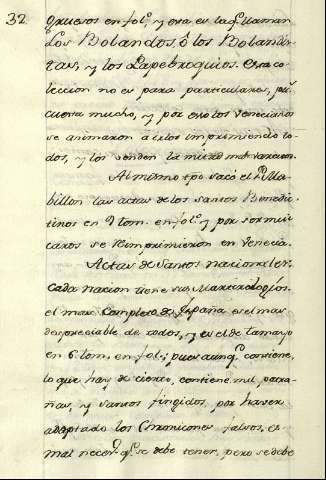 32
gruesos en fol.º y esa es la q.e llaman
Los Bolandos, ô los Bolandis-
tas, y los Papebroquios. esa co-
leccion no es para particulares, p.r q.e
cuesta mucho, y por eso los Venecianos
se animaron â irlos imprimiendo to-
dos, y los venden la mitad mas varatos.
Al mismo tpô sacó el P. Ma-
billon las actas de los Santos Benedic-
tinos en 9 tom. en fol.º y por ser mui
caros se reimprimieron en Venecia.
Actas de Santos nacionales.
Cada nacion tiene sus Martirologios.
el mas completo de España es el mas
despreciable de todos, y es el de tamayo
en 6. tom. en fol.; pues aunq.e contiene,
lo que hay de cierto, contiene mil patra-
ñas, y Santos fingidos, por haver
adoptado los Cronicones falsos, es
mal neces.º q.e se debe tener, pero se debe